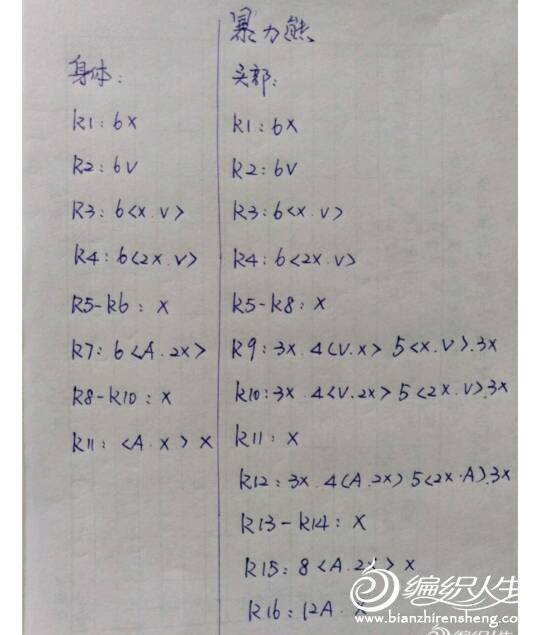 暴力熊
身体:
R1: 6X
R2: 6V
R3: 6<X.V>
R4: 6<2X.V>
R5-R6: X
R7: 6<A.2X>
R8-R10: X
R11: <A.X>X
头部:
R1: 6X
R2: 6V
R3: 6<X.V>
R4: 6<2X.V>
R5-R8: X
R9: 3X.4<V.X> 5<X.V>.3X
R10: 3X.4<V.2X> 5<2X.V>.3X
R11: X
R12: 3X.4<A.2X> 5<2X.A>.3X
R13-R14: X
R15: 8<A.2X>X
R16: 12A.X
编织人生
www.bianzhirensheng.com
编织人生